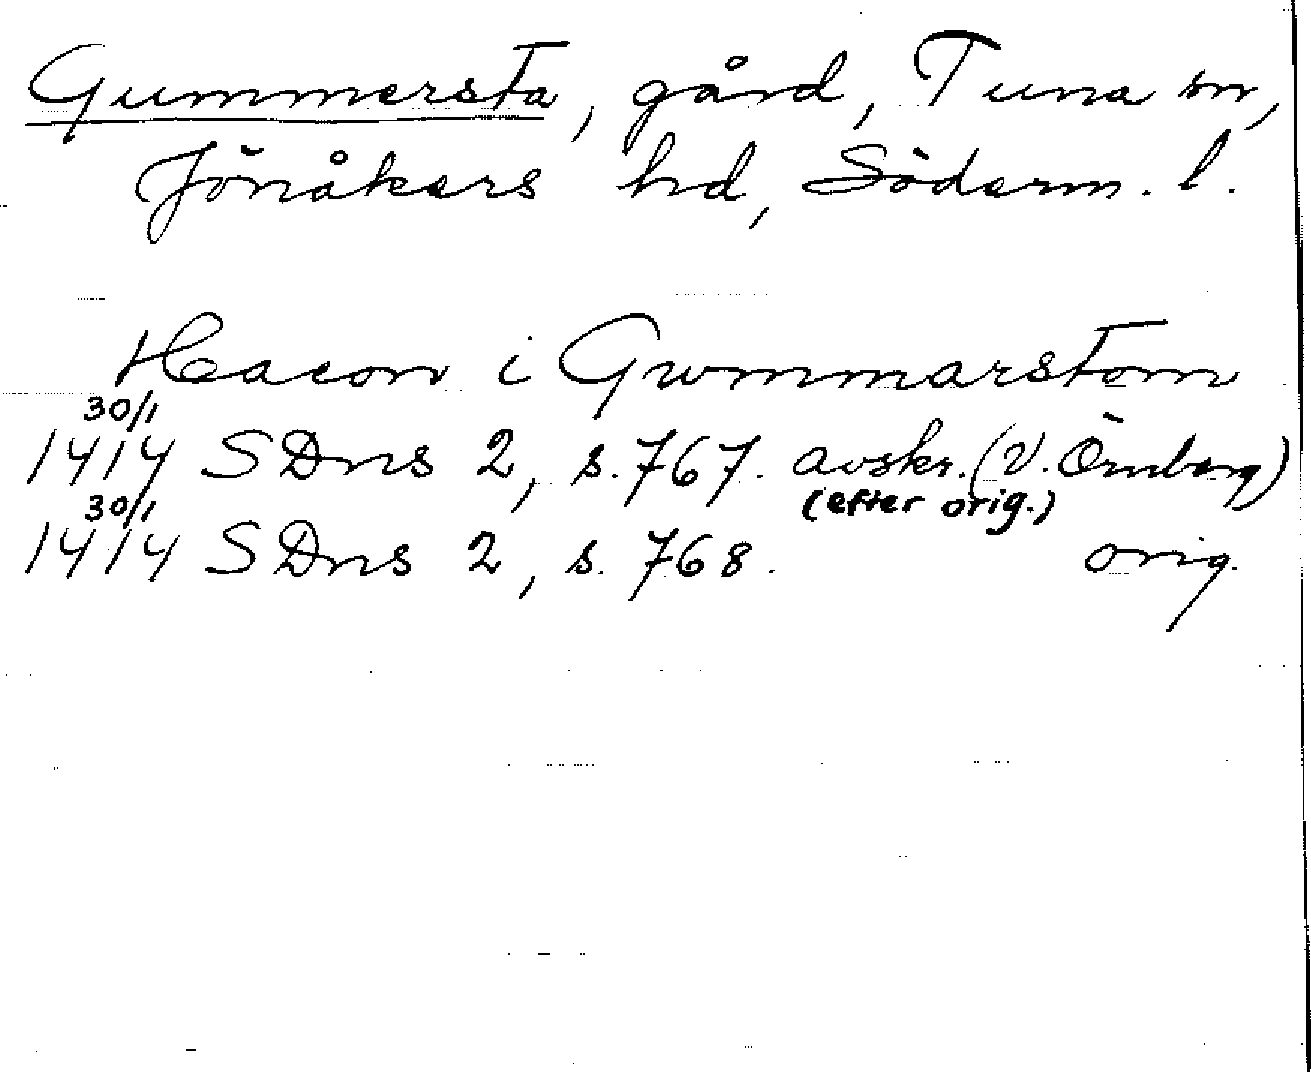 Gummersta, gård, Tuna sn,
Jönåkers hd, Söderm. l.
Hacon i Gummarstom
30/1
1414 SDns 2, s. 767. avskr. (V. Örnberg)
(efter orig.)
30/1
1414 SDns 2, s. 768. orig.